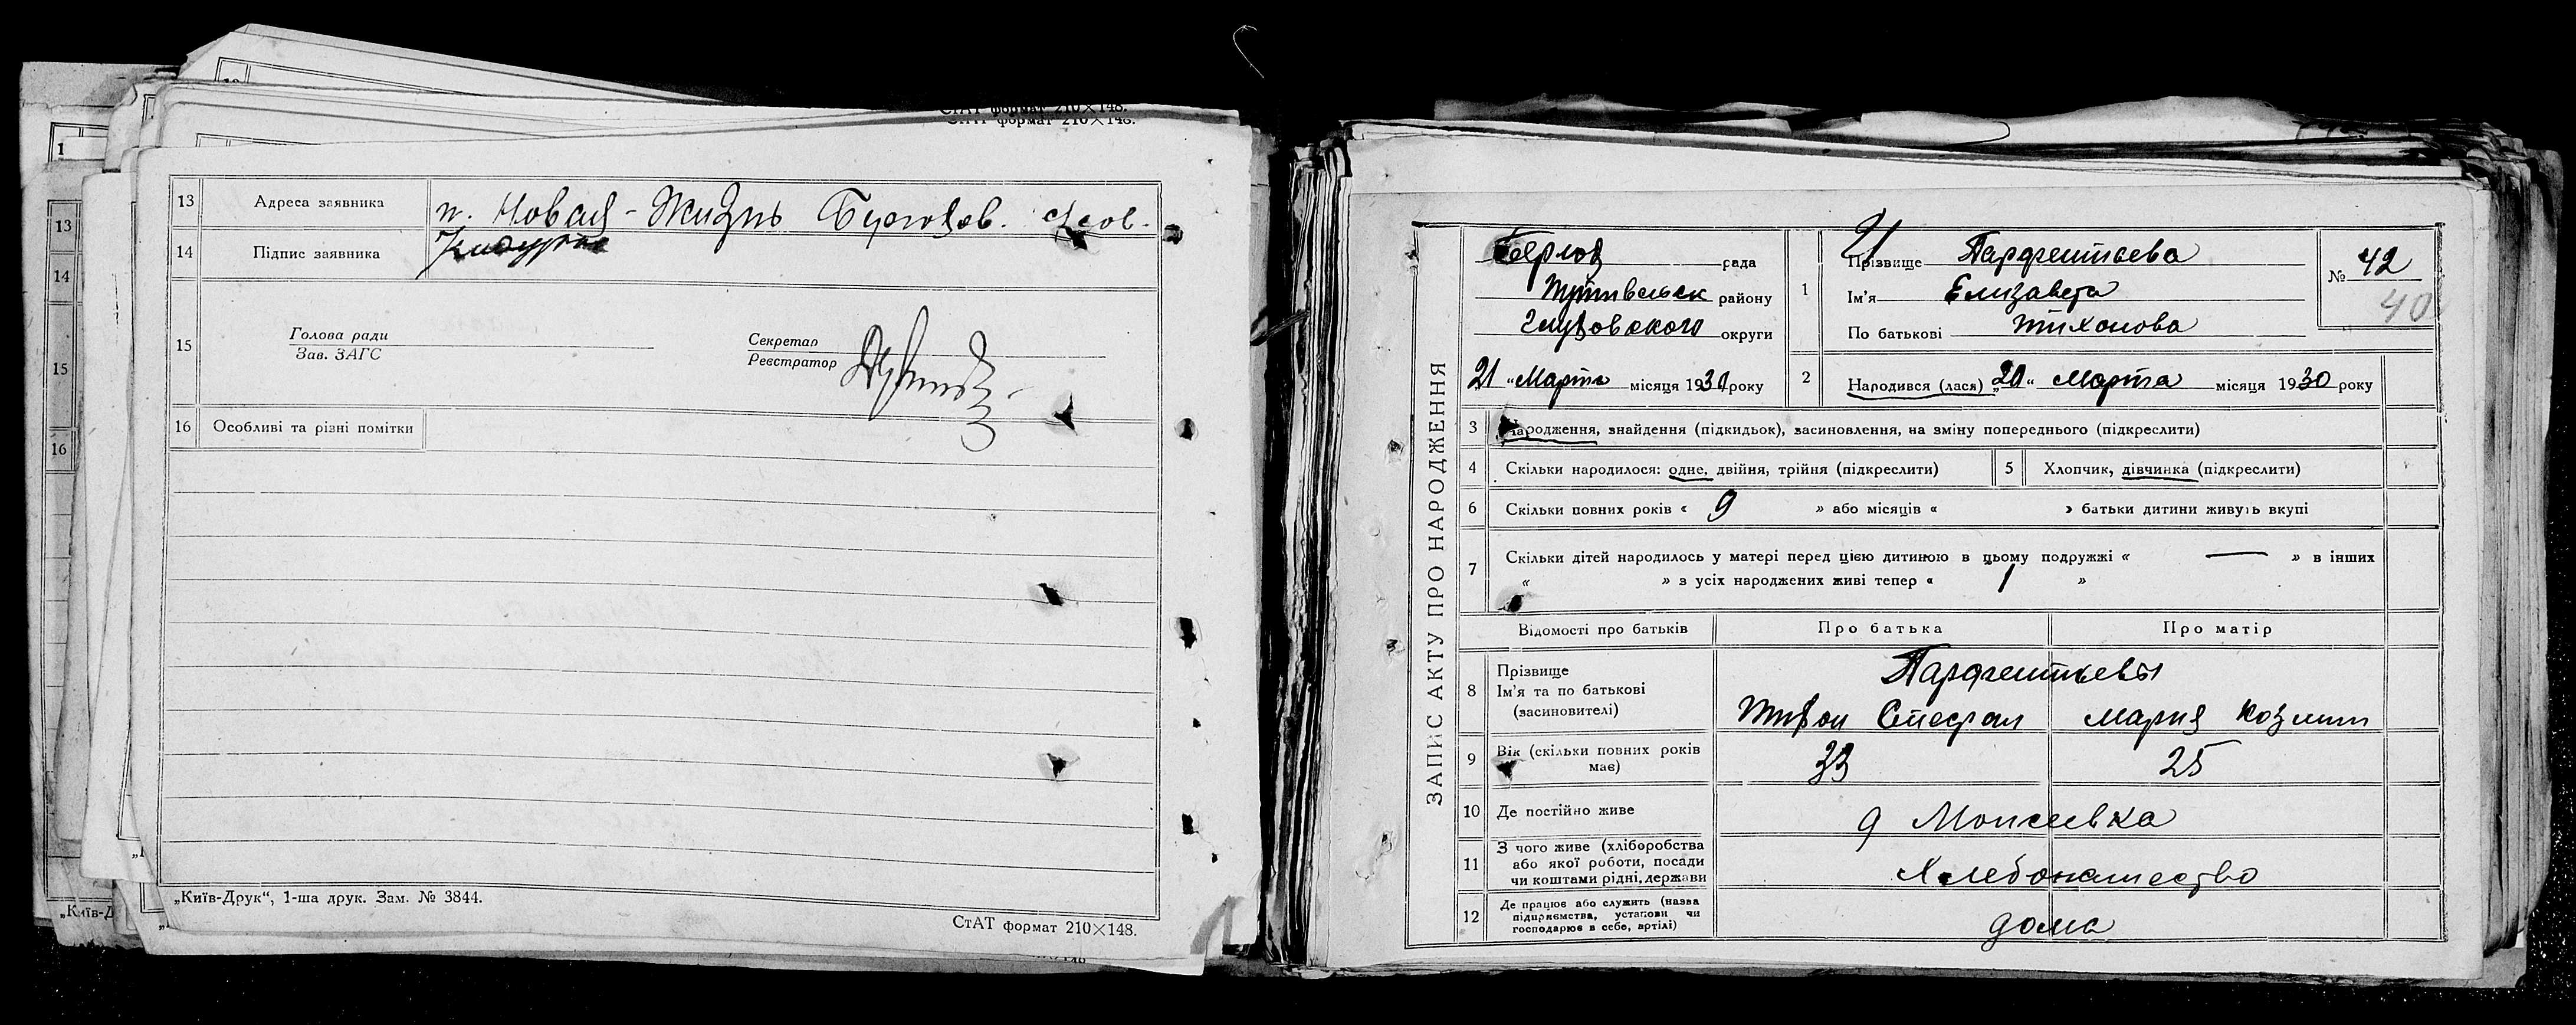 СтАТ формат 210×148.
СтАТ формат 210×148.
13 Адреса заявника п. Новая-Жизнь
14 Підпис заявника
15 Голова ради
Зав. ЗАГС
Секретар
Реєстратор
16 Особливі та різні помітки
„Київ-Друк“, 1-ша друк. Зам. № 3844.
СтАТ формат 210×148.
1
13
14
15
16
„Київ-Д
ЗАПИС АКТУ ПРО НАРОДЖЕННЯ
рада
района району
округи
21 „Марта місяця 1930 року
1 Прізвище Парфентьева
Ім'я Елизавета
По батькові Тихонова
№ 42
40
2 Народився (лася) „20“ Марта місяця 1930 року
3 Народження, знайдення (підкидьок), засиновлення, на зміну попереднього (підкреслити)
4 Скільки народилося: одне, двійня, трійня (підкреслити)
5 Хлопчик, дівчинка (підкреслити)
6 Скільки повних років « 9 » або місяців « » батьки дитини живуть вкупі
7 Скільки дітей народилось у матері перед цією дитиною в цьому подружжі « — » в інших
« » з усіх народжених живі тепер « 1 »
Відомості про батьків Про батька Про матір
8 Прізвище
Ім'я та по батькові
(засиновителі)
Парфентьевы
Тихон Стефан Мария Козмин
9 Вік (скільки повних років
має) 33 25
10 Де постійно живе д Моисеевка
11 З чого живе (хліборобства
або якої роботи, посади
чи коштами рідні, держави
Хлебопашество
12 Де працює або служить (назва
підприємства, установи чи
господарює в себе, артілі)
дома